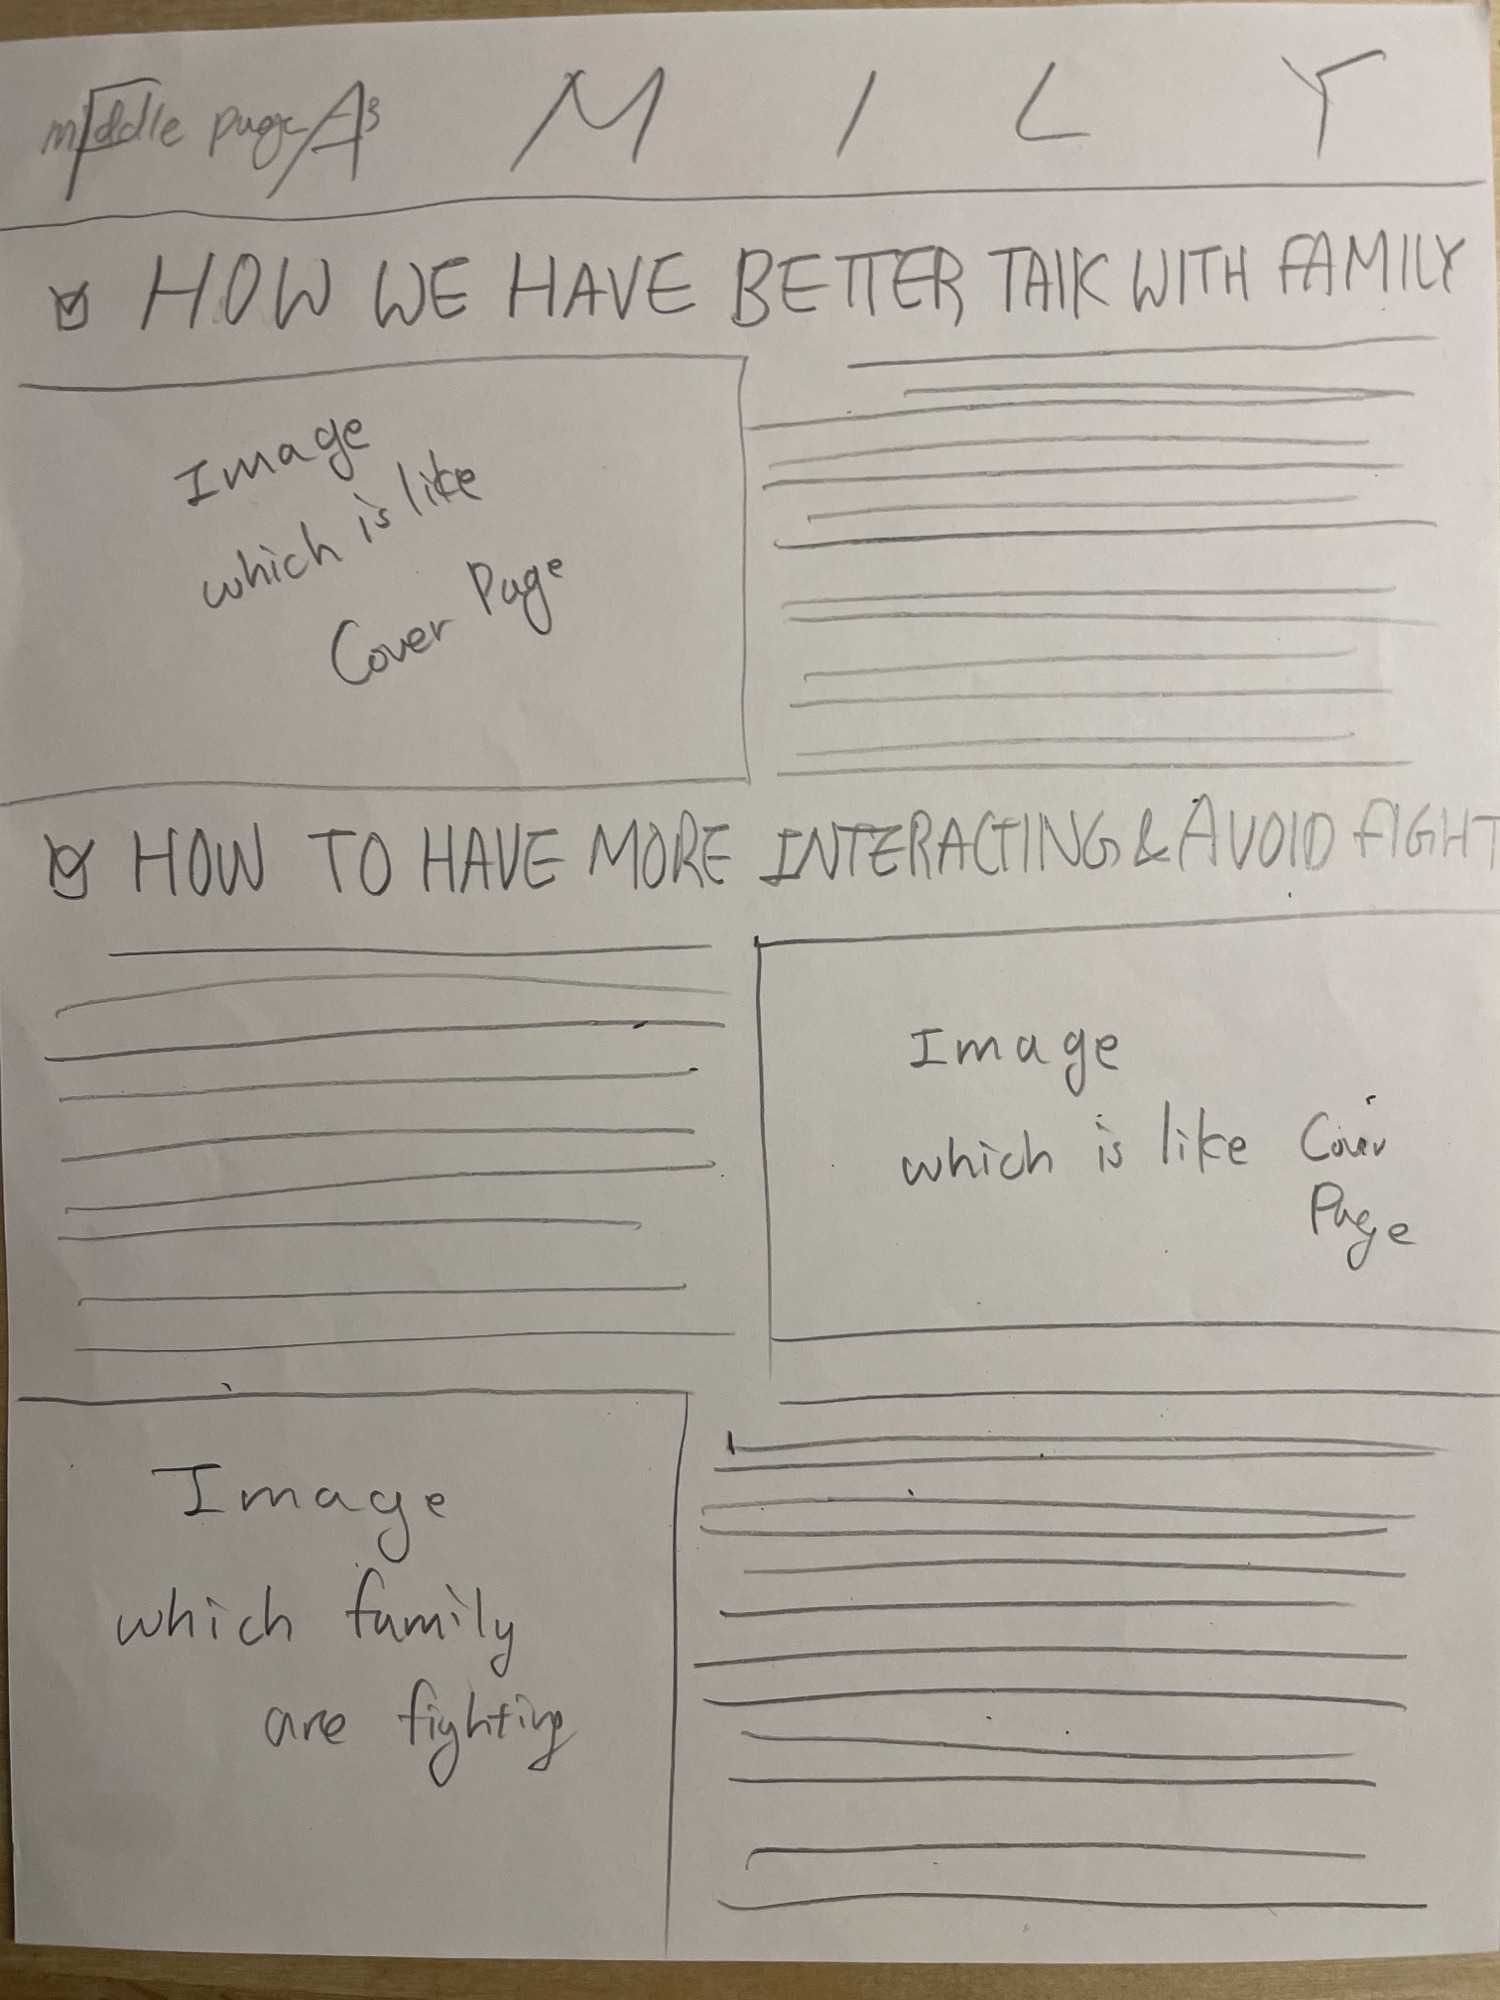 F A M I L Y
middle page A3
HOW WE HAVE BETTER TALK WITH FAMILY
Image
which is like
Cover Page
HOW TO HAVE MORE INTERACTING & AVOID FIGHT
Image
which is like Cover
Page
Image
which family
are fighting